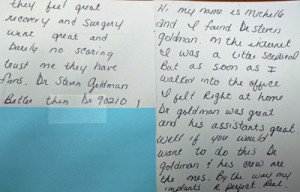 Hi my name is Michelle
and I found Dr Steven
goldman on the internet
I was a little
But as soon as I
walked into the office
I felt Right at home
Dr goldman was great
and his assistants great
well if you would
want to do this Dr
Goldman & his crew are
the ones. By the way my
implants R perfect
they feel great
recovery and surgery
went great and
Barely no scaring
trust me they have
fans. Dr Steven Goldman
Better then Dr 90210!